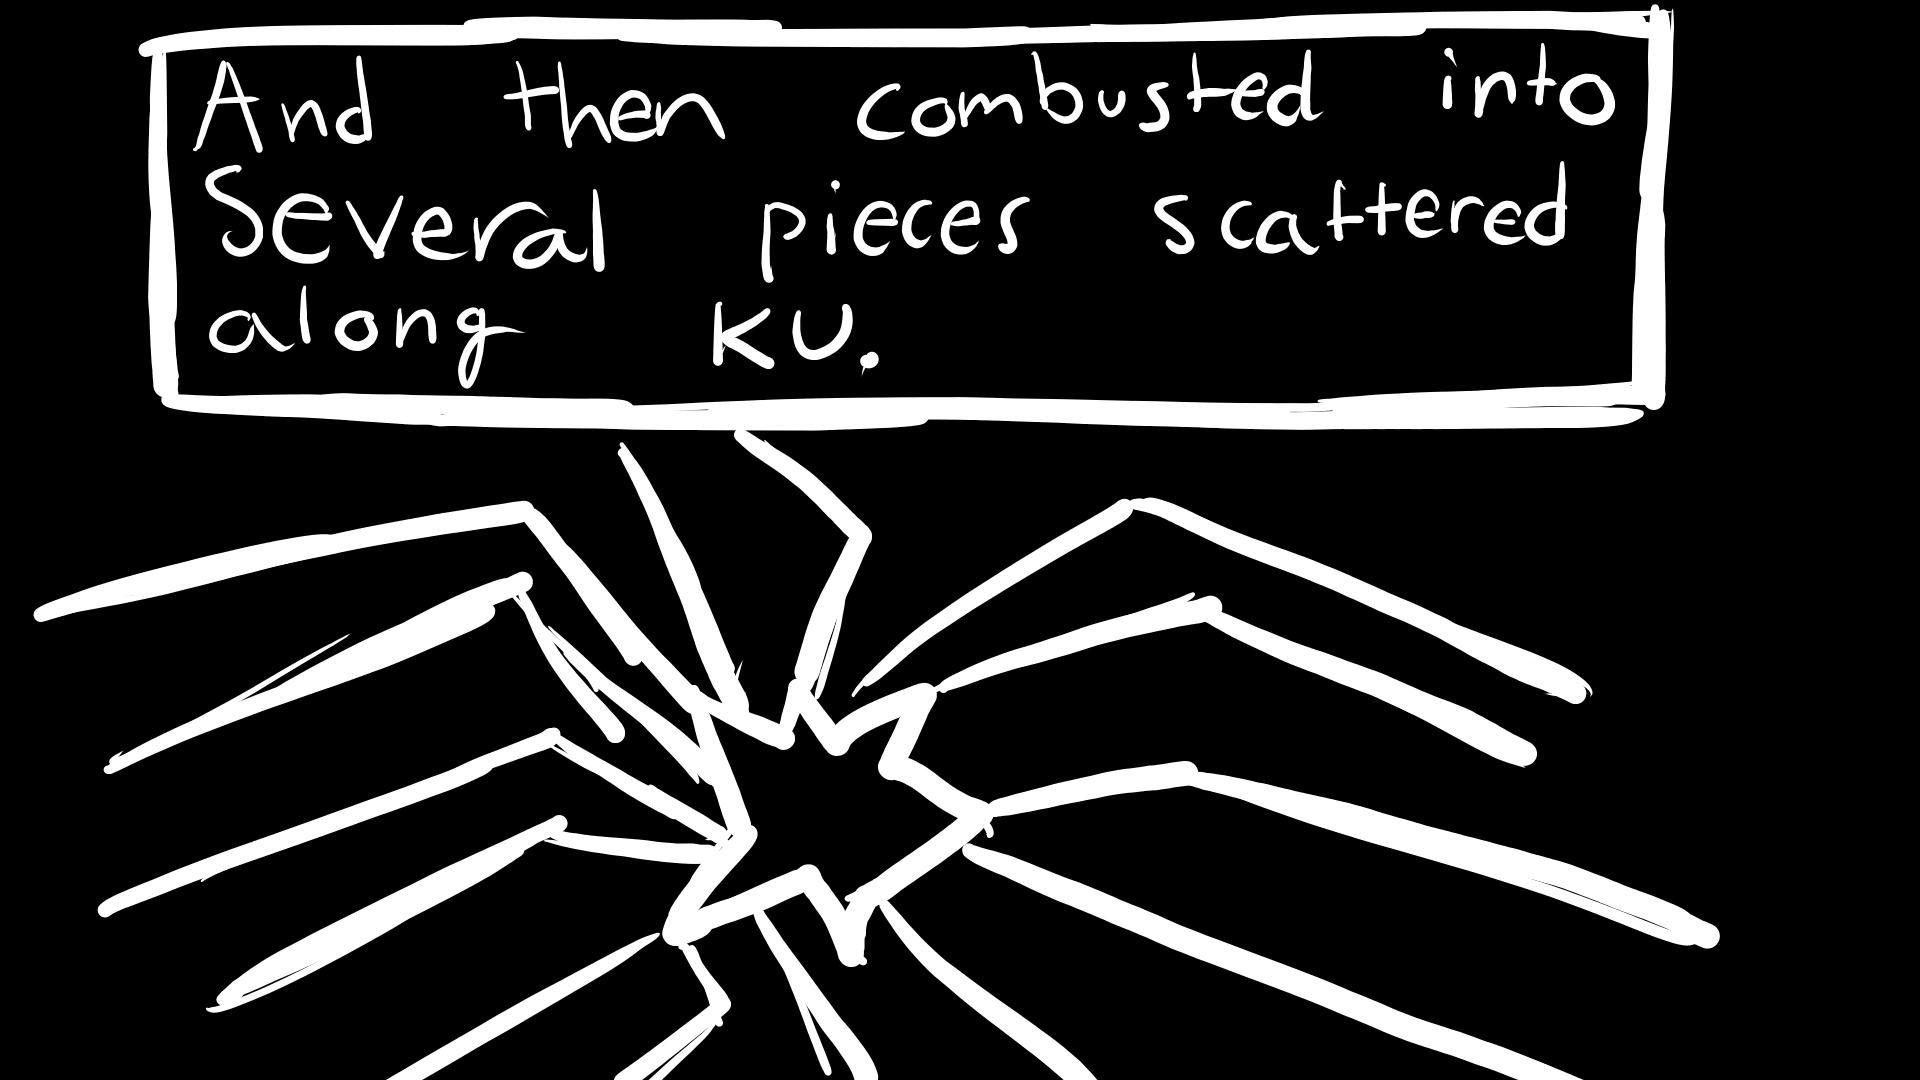 And then combusted into
Several pieces scattered
along KU.